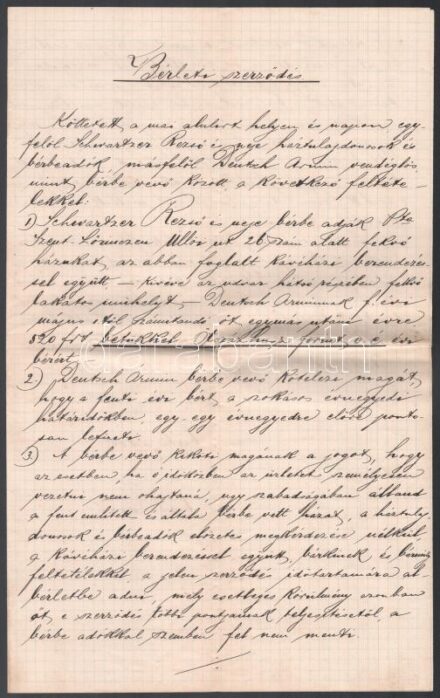 Bérleti szerződés
Köttetett a mai alulirt helyen és napon egy-
felől Schwartzer Rezső és neje háztulajdonosok és
bérbeadók másfelől Deutsch Ármin vendéglős
mint bérbe vevő között, a következő feltéte-
lekkel:
1) Schwartzer Rezső és neje bérbe adják Pta
Szent Lőrinczen Üllői út 26 szám alatt fekvő
házukat, az abban foglalt kávéházi berendezés-
sel együtt – kivéve az udvar hátsó részében fekvő
lakatos műhelyt – Deutsch Árminnak f. évi
május 1től számitandó öt egymás után évre
520 frt betükkel Ötszázhusz forint o. é. évi
bérért.
2) Deutsch Ármin bérbe vevő kötelezi magát,
hogy a fenti évi bért a szokásos évnegyedi
határidőkben, egy egy évnegyedre előre ponto-
san lefizeti.
3) A bérbe vevő kiköti magának a jogot, hogy
az esetben, ha ő időközben az üzletet személyesen
vezetni nem óhajtaná, ugy szabadságában álland
a fent emlitett és általa bérbe vett házat, a háztulaj-
donosok és bérbeadók előzetes megkérdezése nélkül,
a kávéházi berendezéssel együtt, bárkinek és bármily
feltételekkel, a jelen szerződés időtartamára al-
bérletbe adni, mely esetleges körülmény azonban
őt, e szerződés többi pontjainak teljesitésétől, a
bérbe adókkal szemben fel nem menti.
darabanth